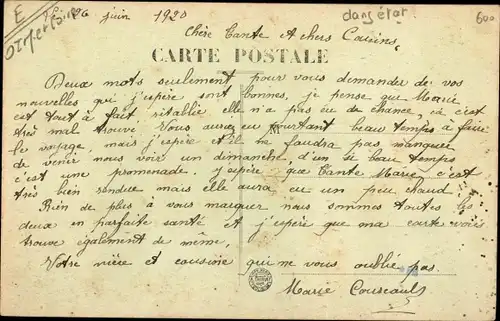 E
26 juin 1920
dans état
600
Chère Tante et chers Cousins,
CARTE POSTALE
Deux mots seulement pour vous demander de vos
nouvelles qui j'espère sont bonnes, je pense que Marie
est tout à fait rétablie elle n'a pas eu de chance, ça c'est
très mal trouvé Vous auriez eu pourtant beau temps à faire
le voyage, mais j'espère et il ne faudra pas manquer
de venir nous voir un dimanche, d'un si beau temps
c'est une promenade. j'espère que Tante Marie c'est
très bien rendue mais elle aura eu un peu chaud
Rien de plus à vous marquer nous sommes toutes les
deux en parfaite santé et j'espère que ma carte vous
trouve également de même,
Votre nièce et cousine qui ne vous oublie pas.
Marie